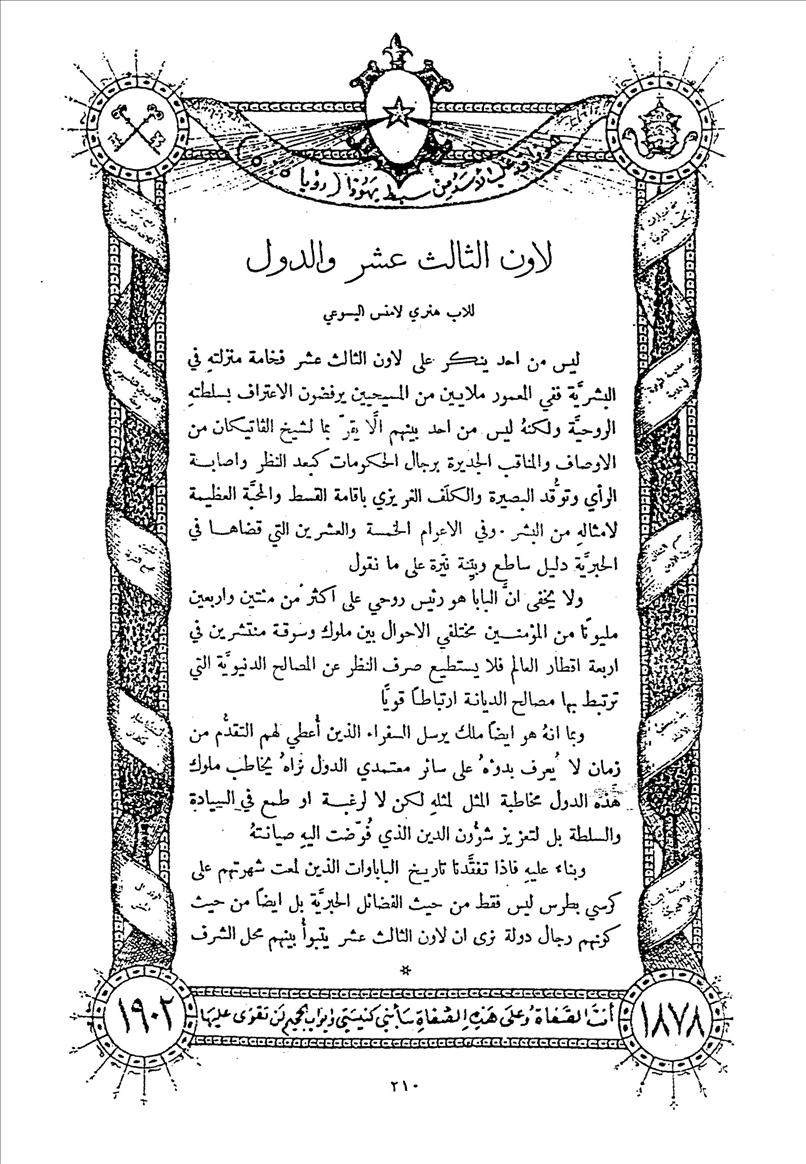 الاسد من سبط يهوذا (رؤيا
لاون الثالث عشر والدول
للاب هنري لامنس اليسوعي
ليس من احد ينكر على لاون الثالث عشر فخامة منزلتهِ في
البشريَّة ففي المعمور ملايين من المسيحيين يرفضون الاعتراف بسلطتهِ
الروحيَّة ولكنهُ ليس من احد بينهم الَّا يقرّ بما لشيخ الڤاتيكان من
الاوصاف والمناقب الجديرة برجال الحكومات كبعد النظر واصابة
الرأي وتوقُّد البصيرة والكلَف الغريزي باقامة القسط والمحبَّة العظيمة
لامثالهِ من البشر . وفي الاعوام الخمسة والعشرين التي قضاهـا في
الحبريَّة دليل ساطع وبيّنة نيّرة على ما نقول
ولا يخفى انَّ البابا هو رئيس روحي على أكثر من مئتين واربعين
مليونًا من المؤمنـين مختلفي الاحوال بين ملوك وسوقة منتشرين في
اربعة اقطار العالم فلا يستطيع صرف النظر عن المصالح الدنيويَّة التي
ترتبط بها مصالح الديانة ارتباطًا قويًّا
وبما انهُ هو ايضًا ملك يرسل السفراء الذين أُعطي لهم التقدُّم من
زمان لا يُعرف بدوهُ على سائر معتمدي الدول نراهُ يخاطب ملوك
هذه الدول مخاطبة المثل لمثلهِ لكن لا لرغبة او طمع في السيادة
والسلطة بل لتعزيز شؤون الدين الذي فُوّضت اليهِ صيانتهُ
وبناء عليهِ فاذا تفقَّدنا تاريخ الباباوات الذين لمعت شهرتهم على
كرسي بطرس ليس فقط من حيث الفضائل الحبريَّة بل ايضًا من حيث
كونهم رجال دولة نرى ان لاون الثالث عشر يتبوأُ بينهم محل الشرف
*
١٨٧٨
أنت الصفاة وعلى هذه الصفاة سأبني كنيستي وابواب الجحيم لن تقوى عليها
١٩٠٢
٢١٠